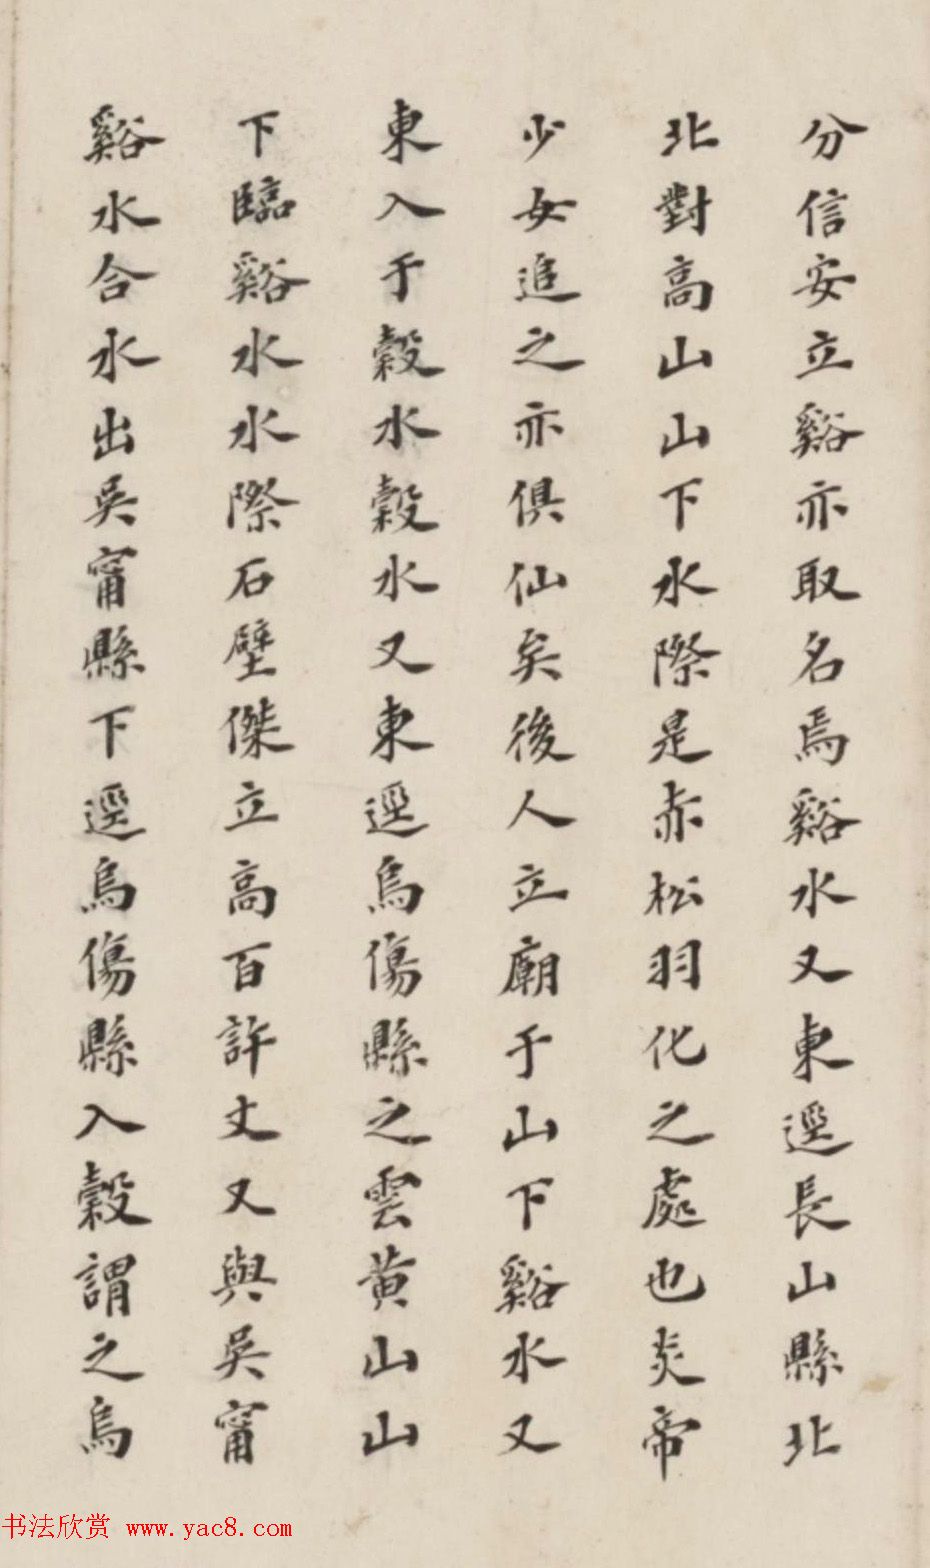 分信安立谿亦取名焉谿水又東逕長山縣北
北對高山山下水際是赤松羽化之處也炎帝
少女追之亦俱仙矣後人立廟于山下谿水又
東入于穀水穀水又東逕烏傷縣之雲黄山山
下臨谿水水際石壁傑立高百許丈又與吳甯
谿水合水出吳甯縣下逕烏傷縣入穀謂之烏
书法欣赏 www.yac8.com